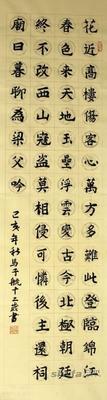 花近高樓傷客心萬方多難此登臨錦江
春色來天地玉壘浮雲變古今北極朝廷
終不改西山寇盜莫相侵可憐後主還祠
廟日暮聊為梁父吟
己亥年秋馬子航十二歲書